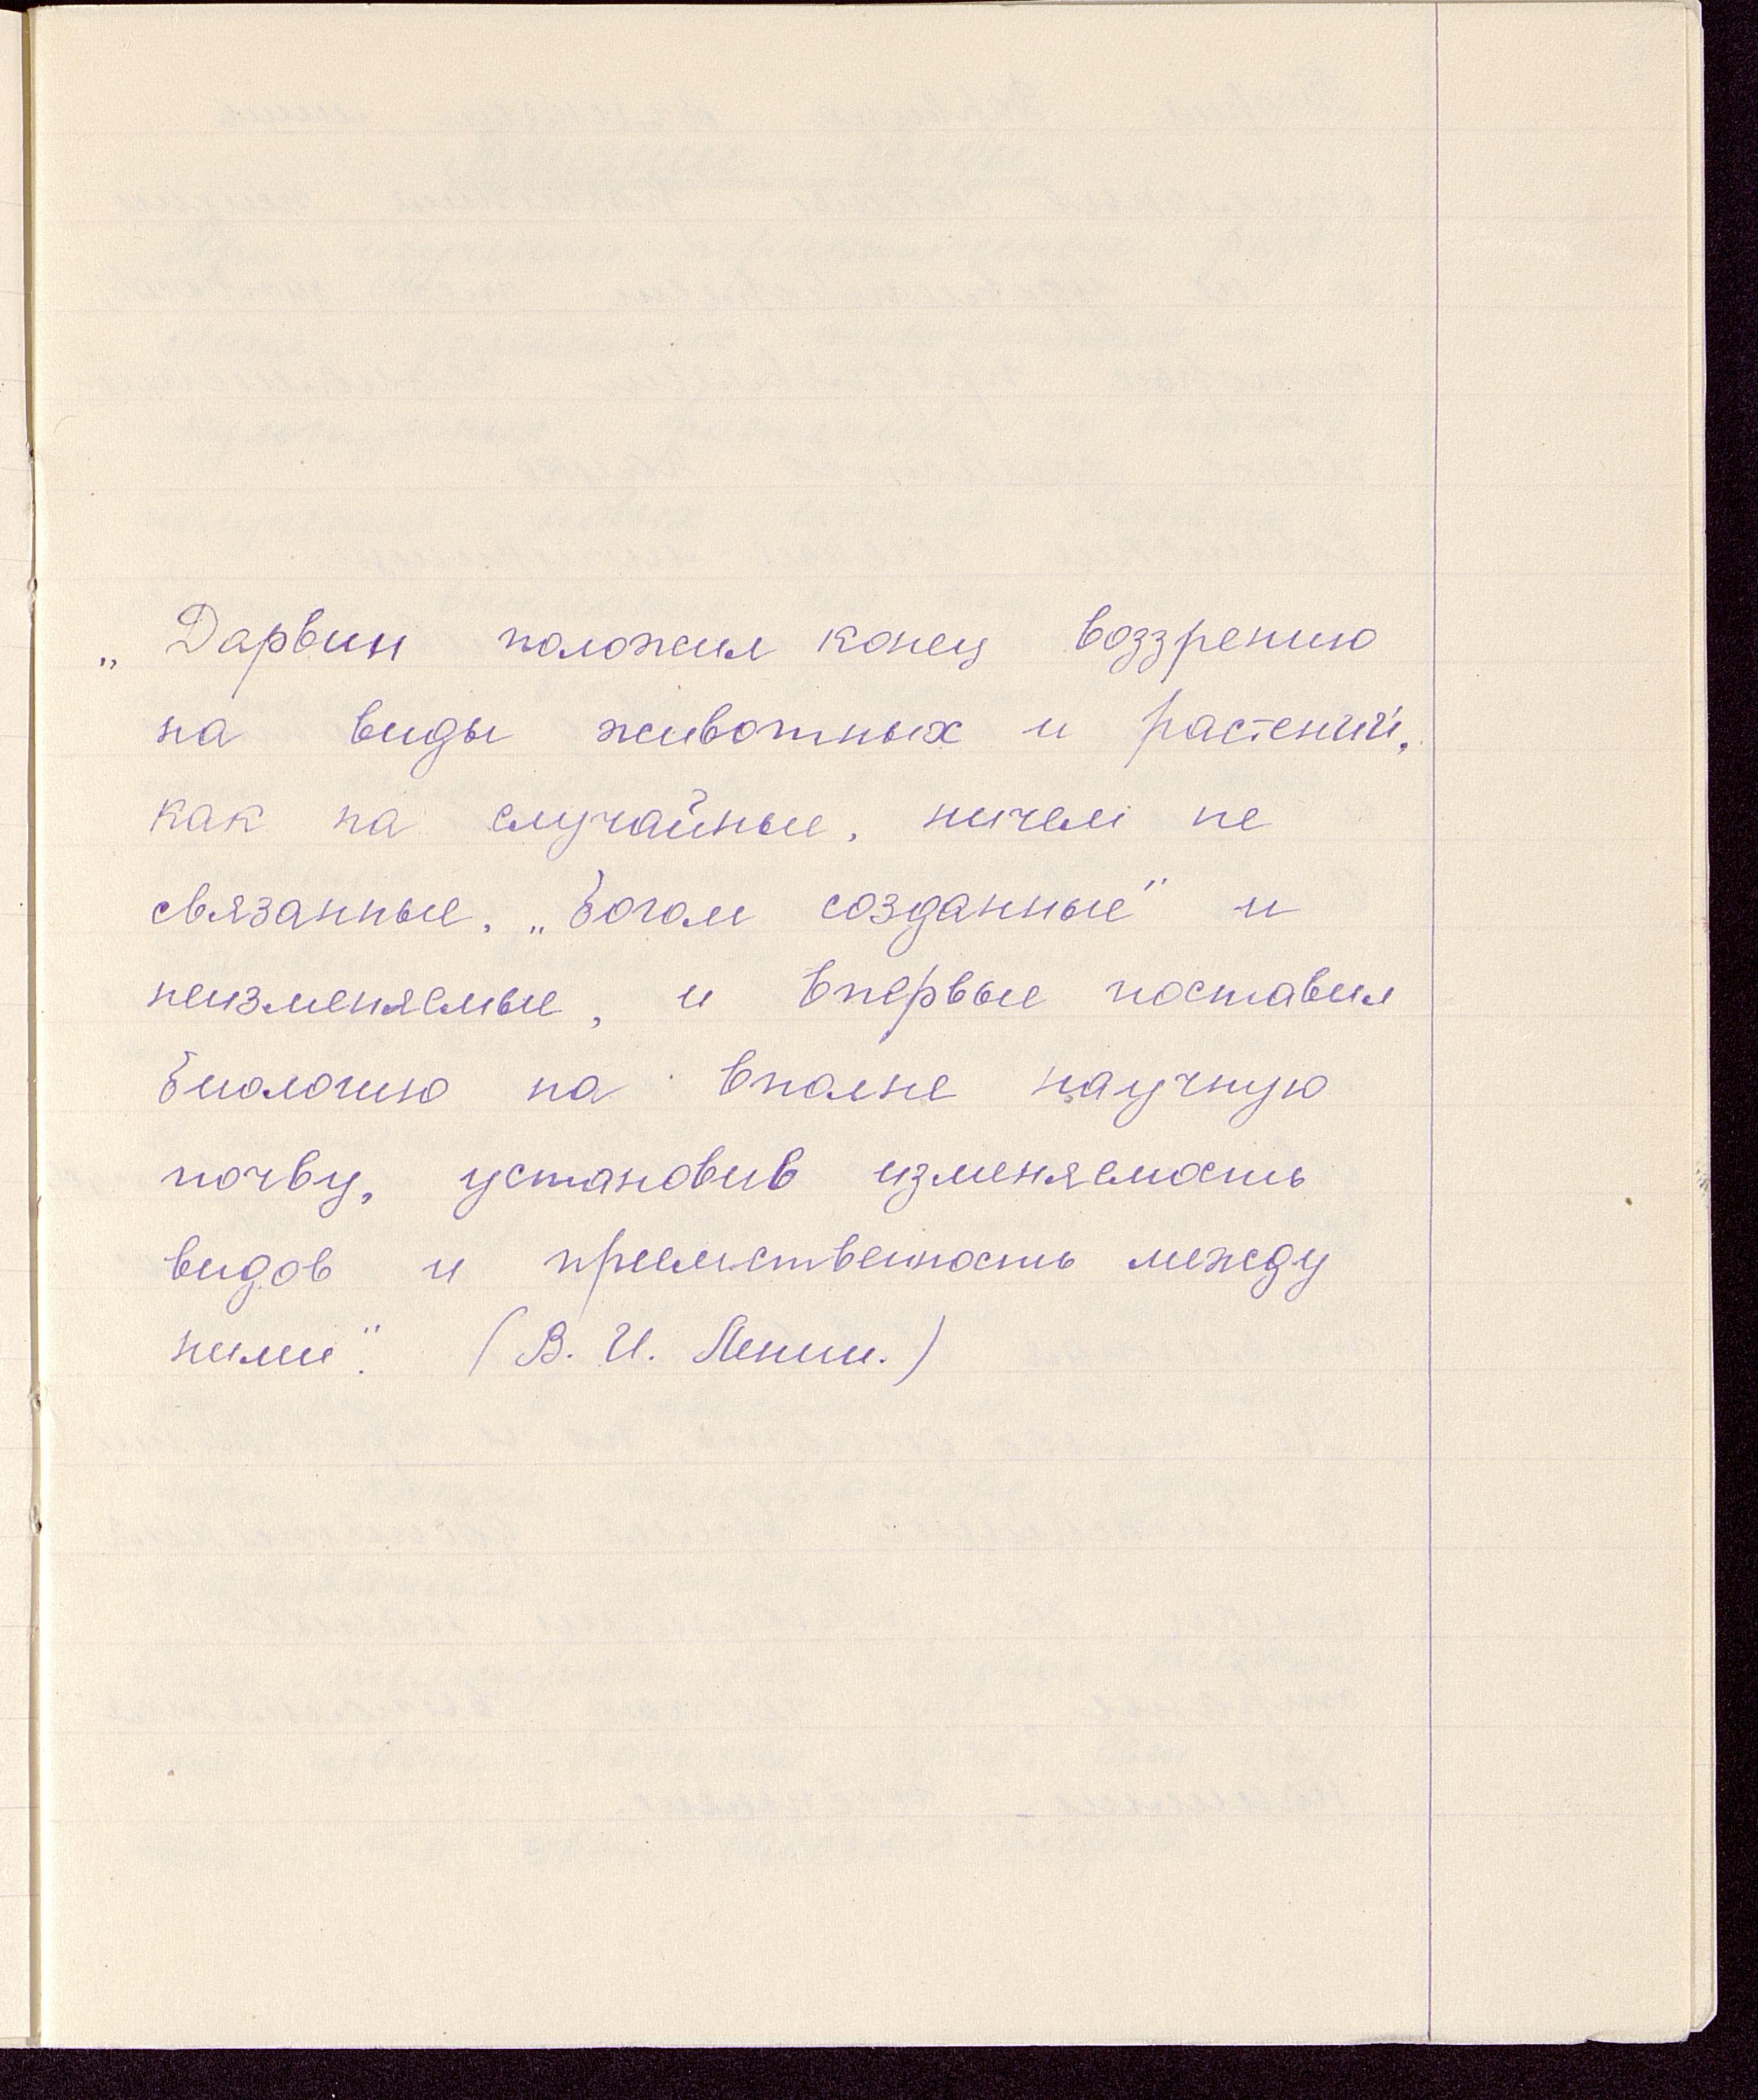 „ Дарвин положил конец воззрению
на виды животных и растений,
как на случайные, ничем не
связанные, „Богом созданные" и
неизменяемые, и впервые поставил
биологию на вполне научную
почву, установив изменяемость
видов и преемственность между
ними". (В. И. Ленин.)